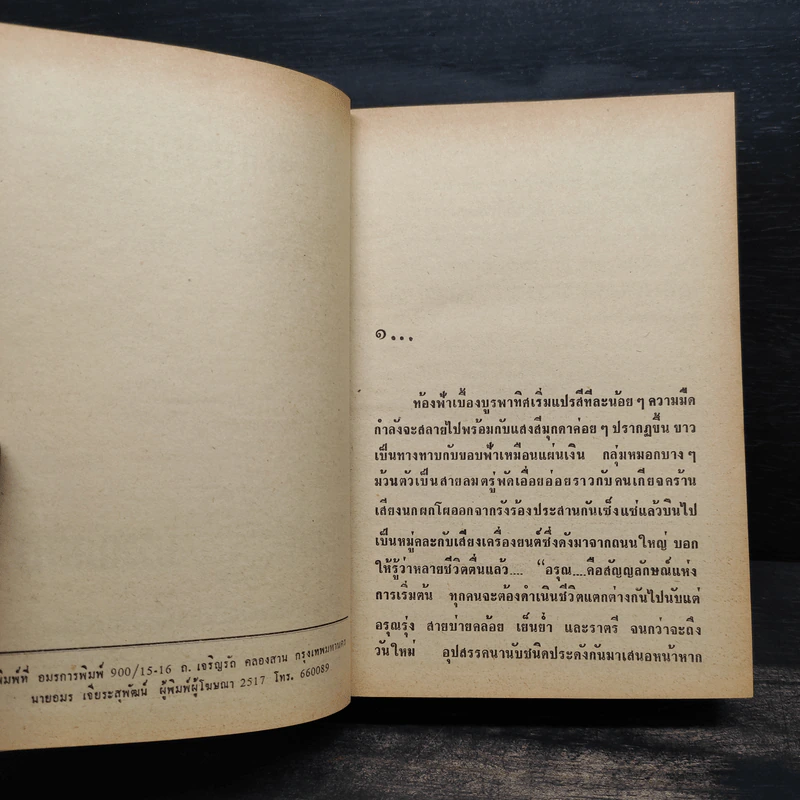 พิมพ์ที่ อมรการพิมพ์ 900/15-16 ถ. เจริญรัถ คลองสาน กรุงเทพมหานคร
นายอมร เจียระสุพัฒน์ ผู้พิมพ์ผู้โฆษณา 2517 โทร. 660089
๑...
ท้องฟ้าเบื้องบูรพาทิศเริ่มแปรสีทีละน้อย ๆ ความมืด
กำลังจะสลายไปพร้อมกับแสงสีมุกดาค่อย ๆ ปรากฏขึ้น ขาว
เป็นทางทาบกับขอบฟ้าเหมือนแผ่นเงิน กลุ่มหมอกบาง ๆ
ม้วนตัวเป็นสายลมตรู่พัดเอื่อยอ่อยราวกับคนเกียจคร้าน
เสียงนกผกโผออกจากรังร้องประสานกันเซ็งแซ่แล้วบินไป
เป็นหมู่คละกับเสียงเครื่องยนต์ซึ่งดังมาจากถนนใหญ่ บอก
ให้รู้ว่าหลายชีวิตตื่นแล้ว.... “อรุณ....คือสัญญลักษณ์แห่ง
การเริ่มต้น ทุกคนจะต้องดำเนินชีวิตแตกต่างกันไปนับแต่
อรุณรุ่ง สายบ่ายคล้อย เย็นย่ำ และราตรี จนกว่าจะถึง
วันใหม่ อุปสรรคนานับชนิดประดังกันมาเสนอหน้าหาก